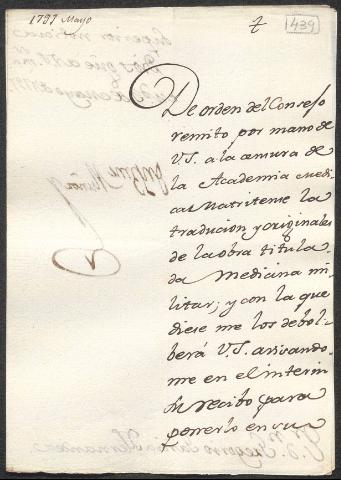 1797 Mayo
439
De orden del Consejo
remito por mano de
V.S. a la censura de
la Academia Medi
ca Matritense la
traducion y originales
de la obra titula
da Medicina mi
litar; y con la que
diese me los debol-
berá V.S. avisando-
me en el interin
su recibo para
ponerlo en su